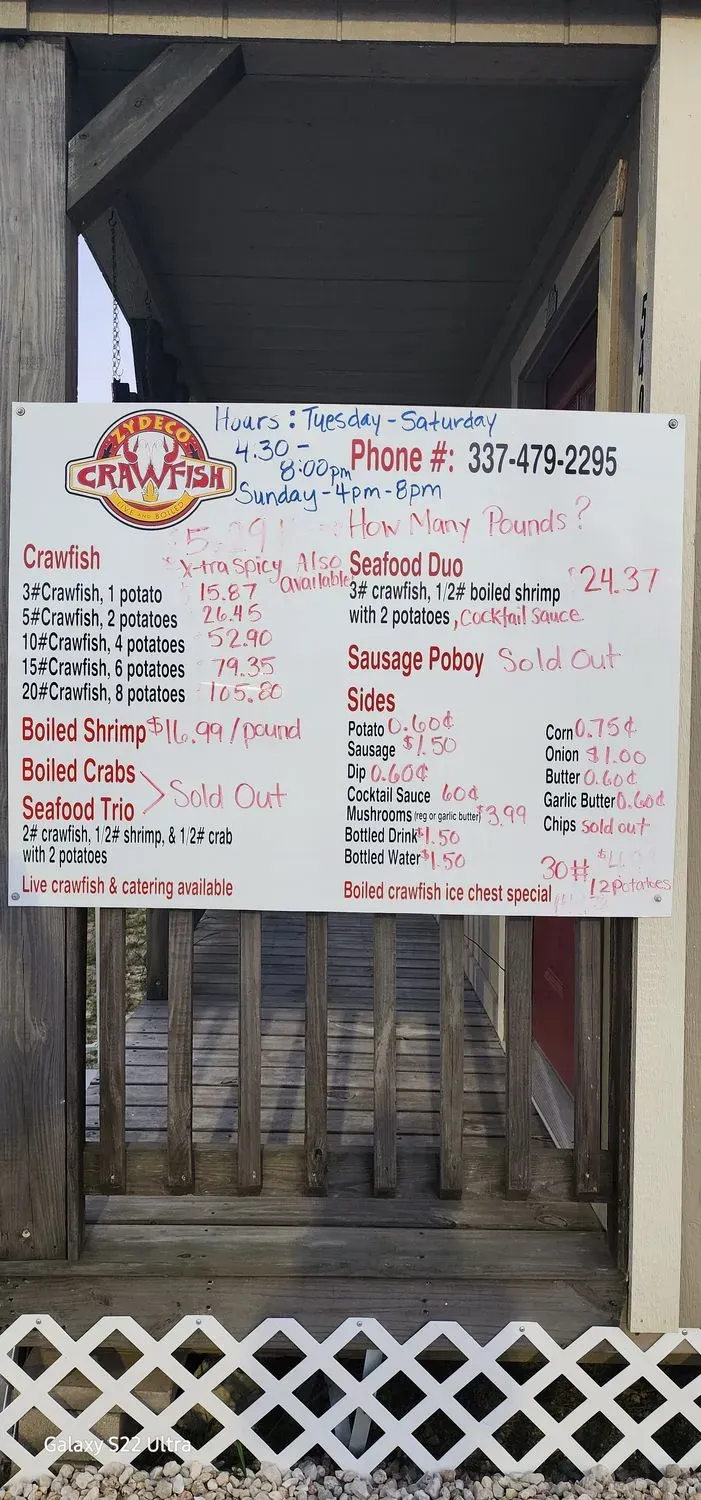 Hours: Tuesday - Saturday
4:30 -
8:00pm
Sunday - 4pm - 8pm
ZYDECO
CRAWFISH
LIVE AND BOILED
Phone #: 337-479-2295
How Many Pounds?
5.29
X-tra Spicy Also
available
Crawfish
3#Crawfish, 1 potato 15.87
5#Crawfish, 2 potatoes 26.45
10#Crawfish, 4 potatoes 52.90
15#Crawfish, 6 potatoes 79.35
20#Crawfish, 8 potatoes 105.80
Boiled Shrimp $16.99/pound
Boiled Crabs
Seafood Trio > Sold Out
2# crawfish, 1/2# shrimp, & 1/2# crab
with 2 potatoes
Live crawfish & catering available
Seafood Duo
3# crawfish, 1/2# boiled shrimp $24.37
with 2 potatoes, cocktail sauce
Sausage Poboy Sold Out
Sides
Potato 0.60¢
Sausage $1.50
Dip 0.60¢
Cocktail Sauce 60¢
Mushrooms (reg or garlic butter) $3.99
Bottled Drink $1.50
Bottled Water $1.50
Corn 0.75¢
Onion $1.00
Butter 0.60¢
Garlic Butter 0.60¢
Chips sold out
Boiled crawfish ice chest special
30#
12 potatoes
540
Galaxy S22 Ultra